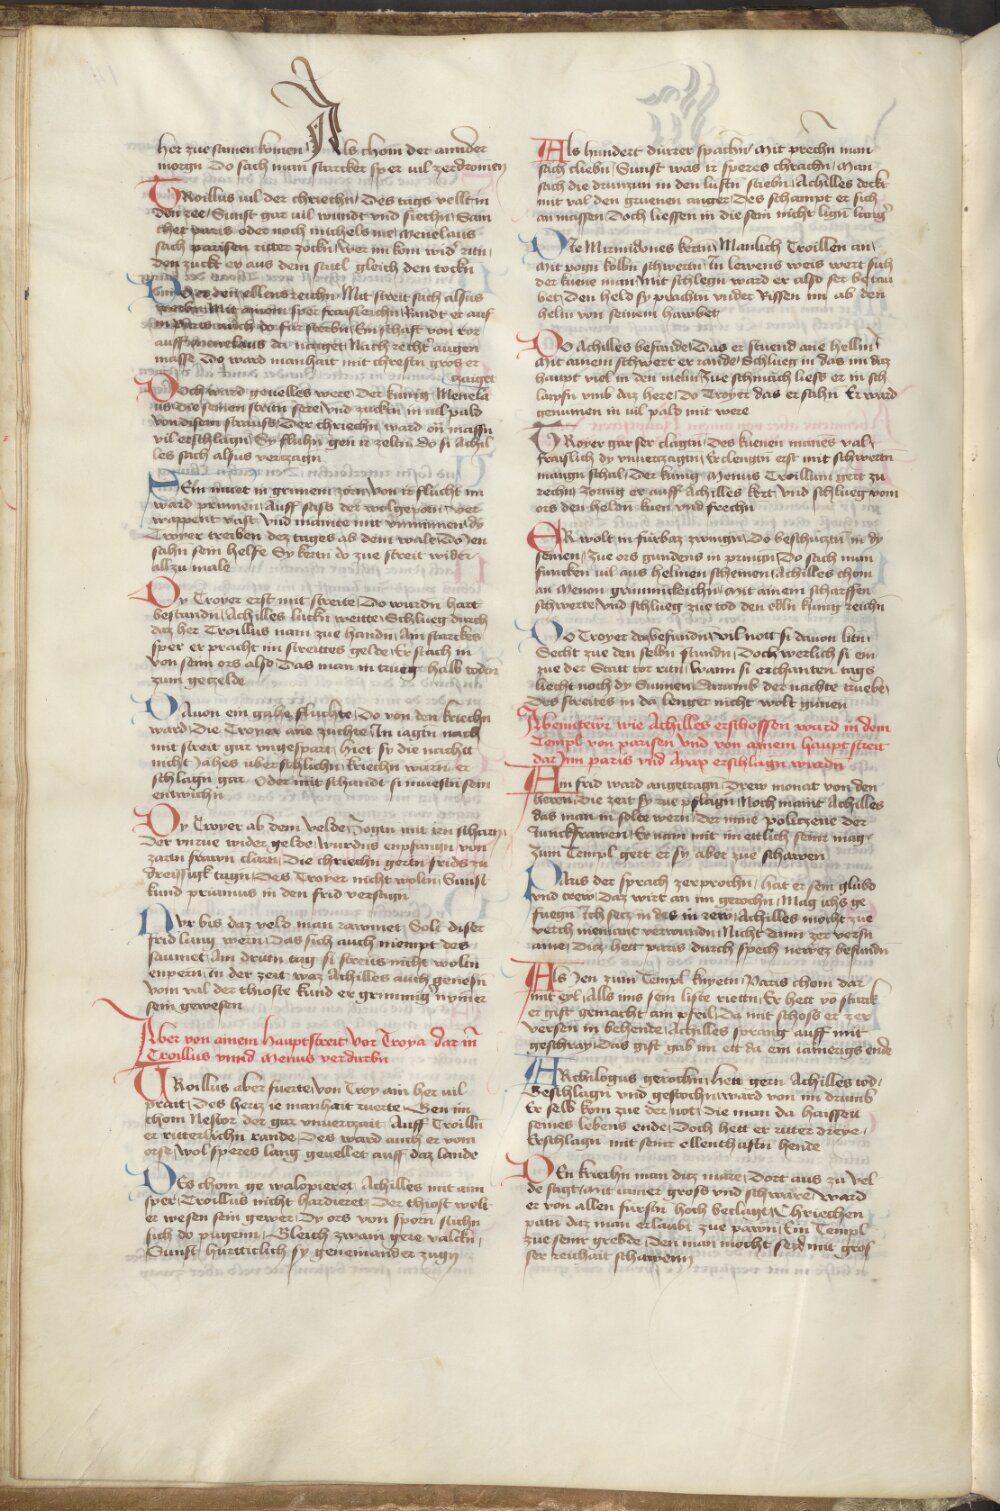 her zue samen komen Als chom der annder
morgn Do sach man starcker sper vil zerdromen
TRoillus vil der chriechn Des tags vellt in
den zee Sunst gar vil wundt vnd siechn Sam
chet paris oder noch michels me Menelaus
sach parisen ritter zockn Wer im kom wider ritn
Den zuckt er aus dem satl gleich den tockn
ellens reichn Mit streit sich alsus
sper fraissleichn Randt er auf
Ein schafft von ror
auff Menelaus da naiget Nach rechter augen
masse Do ward manhait mit chrefftn gros er
zaiget
DOch ward gevelles were Der kunig Menela
us Die seinen strittn sere Vnd zucktn in vil pald
von disem strauss Der chriechn ward on massn
vil erschlagn Sy fluhn gen ir zeltn do si Achil
les sach alsus vertzagn
SEin muet in grimem zorn Von ir flucht im
ward prinnen Auff sass der wolgeporn Ver
wappent vast Vnd mainte mit vnminnen dy
Troyer treiben dez tages ab dem wale Do Jen
sahn sein helfe Sy kertn do zue streit wider
allzu male
DY Troyer erst mit streite Do wurdn hart
bestandn Achilles luckn weitte Schlueg durch
daz her Troillus nam zue handn Ain starckes
sper er pracht im streittes gelde Er stach in
von seim ors also Das man in trueg halb toden
zum getzelde
DAuon ein gahe fluchte Do von den kriechn
ward Die Troyer ane zuchte In iagtn nach
mit streit gar vngespart Hiet sy die nacht
nicht Jahes vberschlichn Kriechn warn er
schlagn gar Oder mit schandt si muestn sein
entwichn
DY Troyer ab dem velde Zogn mit irn scharn
Der vnrue wider gelde Wurdns enpfangn von
zartn frawn clarn Die chriechn gertn frids zu
dreissigk tagn Des Troyer nicht woltn Sunst
kund priamus in den frid versagn
NVr bis daz veld man rawmet Solt diser
frid lang wern Das sich auch niempt des
saumet Am dritn tag si streits nicht woltn
enpern in der zeit waz Achilles auch genesn
Vom val der thioste kund er grimmig nymer
sein gewesen
Aber von ainem hauptstreit Vor Troya dar in
Troillus vnnd Menus verdarbn
TRoillus aber fuerte Von Troy ain her vil
prait Des hertz ie manhait ruerte Gen im
chom Nestor der gar vnuertzait Auff Troilln
er ritterlichn rande Des ward auch er vom
orse Wol speres lang gevellet auff daz lande
DEs chom ge walopieret Achilles mit aim
sper Troillus nicht hardieret Der thiost wolt
er wesen sein gewer Dy ors von sporn fluchn
sich do pugenn Gleich zwain gere valckn
Sunst hurtticlich sy geneinander zugn
Als hundert durrer spachn Mit prechn man
sach cliebn Sunst was ir speres chrachn Man
sach die drunzun in den luftn stiebn Achilles deckt
mit val den gruenen anger Des schampt er sich
an massen Doch liessen in die sein nicht lign langer
DIe Mirmidones kertn Manlich Troillen an
Mit pogn kolbn schwertn In lewens weis wert sich
der kuene man Mit schlegn ward er also ser betau
bet Den held sy prachtn vnder Rissen im ab den
helm von seinem hawbet
DO Achilles befande Das er stuend ane hellm
Mit ainem schwert er rande Schlueg in das im daz
haupt viel in den melm Zue schmach liess er in sch
laipfn vmb daz here Do Troyer das er sahn Er ward
genumen in vil pald mit were
TRoyer gar ser clagtn Des kuenen manes val
fraislich dy vnuertzagtn Erclengtn erst mit schwertn
mangn schal Der kunig Menus Troillum gert zu
rechn Zornig er auff Achilles kert Vnd schlueg vom
ors den heldn kuen vnd frechn
ER wolt in furbaz zwingn Do beschutztn in dy
seinen Zue ors gundens in pringn Do sach man
funcken vil aus helmen scheinen Achilles chom
an Menon grimmickeichn Mit ainem scharffen
schwerte Vnd schlueg zue tod den edln kunig reichn
DO Troyer daz befundn Vil nott si dauon litn
Secht zue den selbn stundn Doch werlich si ein
zue der Statt tor ritn Wann si erchanten tags
liecht noch dy Sunnen darumb der nachte truebe
Des streites in da lenger nicht wolt gunen
Abenteur wie Achilles erschossen ward in dem
Templ von parisen Vnd von ainem hauptstreit
dar Jnn paris vnd Ayax erschlagn wurdn
AIn frid ward angetragn Drew monat von den
heren Die zeit sy zue pflagn Noch maint Achilles
das man in solte wern der mine politzene der
Junckfrawen Er nam mit im ettlich seinr mag
Zum Templ gert er sy aber zue schawen
PAris der sprach zerprochn hat er sein glubd
vnd trew Daz wirt an im gerochn Mag ichs ge
fuegn Ich setz in des in rew Achilles mocht zue
verch niemant verwundn Nicht dann zer versn
aine Daz hett paris durch spech newez befundn
Als Jen zum Templ knyetn Paris chom dar
mit eyl Alls ins sein liste rietten Er hett vo starck
er gift gemacht ain pfeil Da mit schoss er zer
versen in behende Achilles sprang auff mit
geschray Das gift gab im ett da ein iamerigs ende
ARchilogus gerochn Hett gern Achilles tod
Geschlagn vnd gestochn ward von im drumb
Er selb kom zue der not Die man da haissett
seines lebens ende Doch hett er ritter dreye
Erschlagn mit seinr ellenthaftn hende
DEn kriechn man ditz mare Dort aus zu vel
de sagt Mit iamer gross vnd schware Ward
er von allen furstn hoch beclagt Chriechen
patn daz man erlaubt zue pawn Ein Templ
zue seinr grebde Den man mocht seyd mit gros
ser reichait schawenn